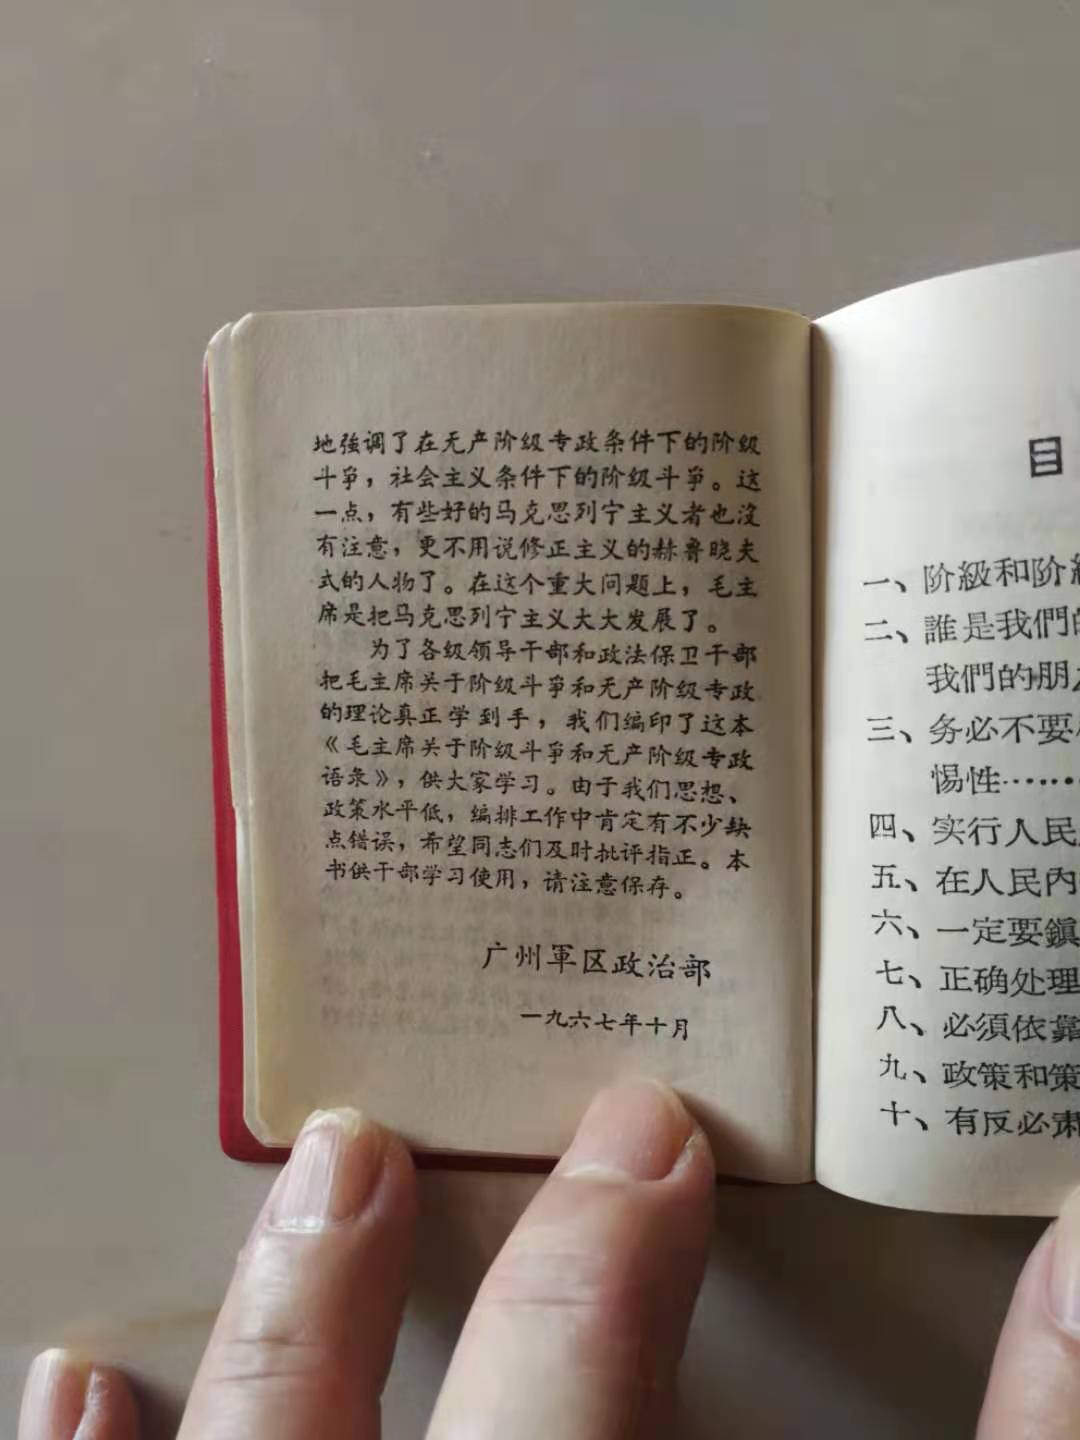 地強调了在无产阶级专政条件下的阶级
斗爭，社会主义条件下的阶级斗爭。这
一点，有些好的马克思列宁主义者也沒
有注意，更不用说修正主义的赫鲁晓夫
式的人物了。在这个重大问题上，毛主
席是把马克思列宁主义大大发展了。
为了各级领导干部和政法保卫干部
把毛主席关于阶级斗爭和无产阶级专政
的理论真正学到手，我们编印了这本
《毛主席关于阶级斗爭和无产阶级专政
语录》，供大家学习。由于我们思想、
政策水平低，编排工作中肯定有不少缺
点错误，希望同志们及时批评指正。本
书供干部学习使用，请注意保存。
广州軍区政治部
一九六七年十月
目
一、阶級和阶級
二、誰是我們的
我們的朋友
三、务必不要
惕性……
四、实行人民
五、在人民內
六、一定要鎭
七、正确处理
八、必須依靠
九、政策和策
十、有反必肃